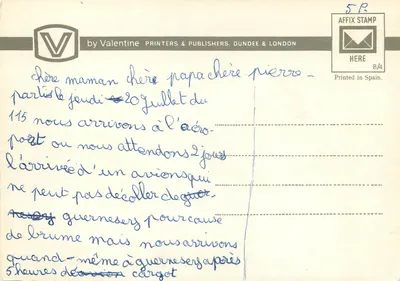 5 P.
AFFIX STAMP
HERE
B/4
Printed in Spain.
V
by Valentine PRINTERS & PUBLISHERS, DUNDEE & LONDON
chère maman chère papa chère pierre -
partis le jeudi 20 Juillet du
115 nous arrivons à l'aéro-
port ou nous attendons 2 jours
l'arrivée d'un avions qui
ne peut pas décoller de guer-
guernesery pour cause
de brume mais nous arrivons
quand - même à guernesery après
5 heures de cargot